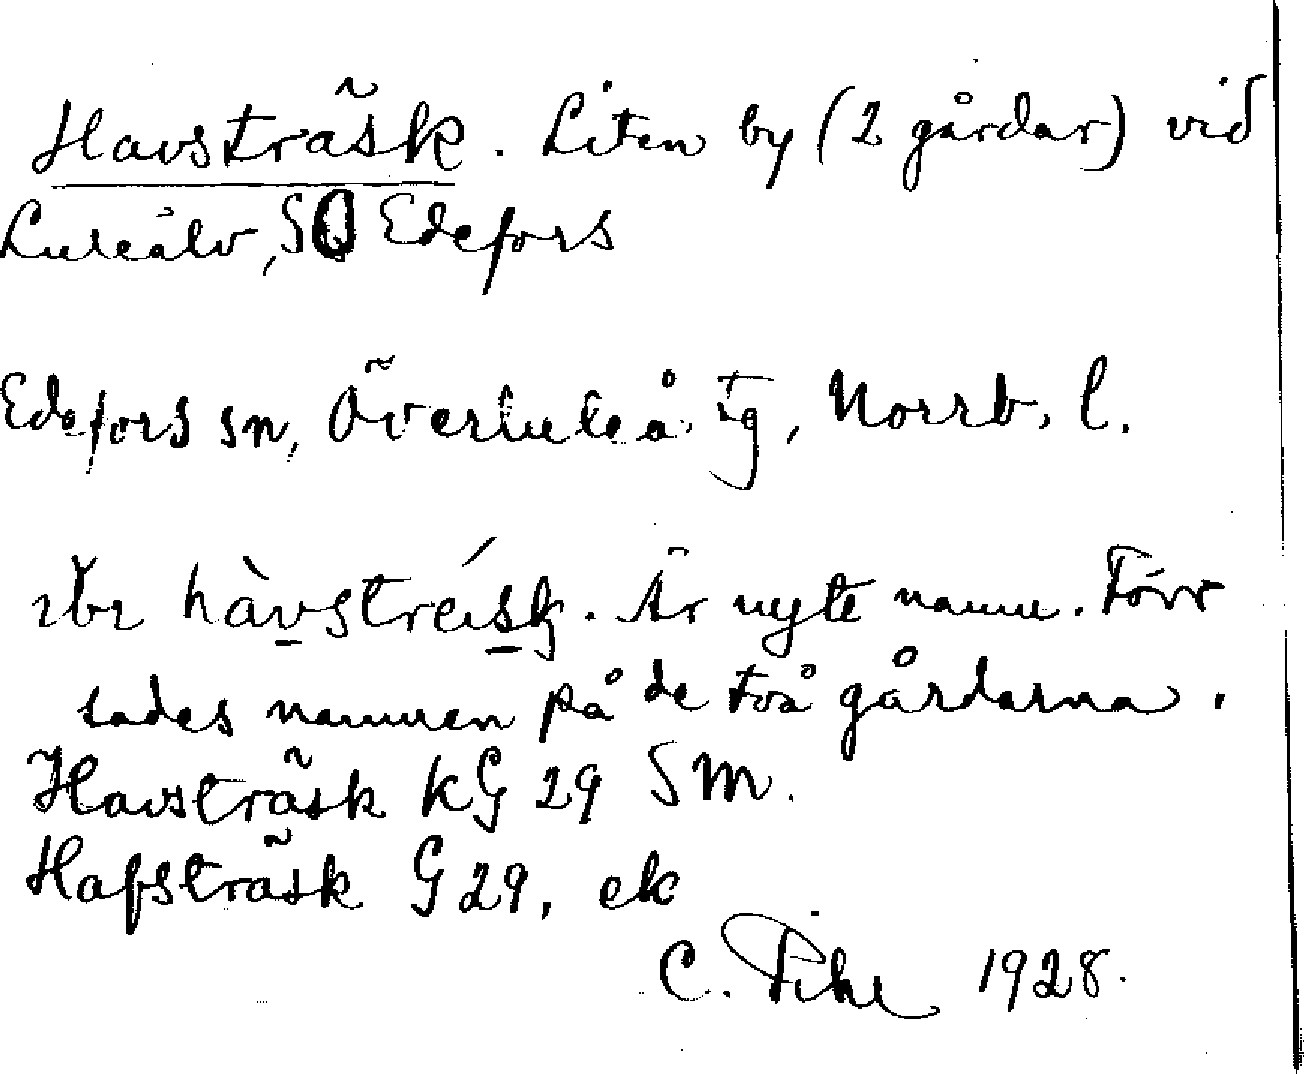 Havsträsk. Liten by (2 gårdar) vid
Luleälv, SO Edefors
Edefors sn, Överluleå tg, Norrb. l.
hàvstreísk. Är nyte namn. Förr
sades namnen på de två gårdarna.
Havsträsk KG 29 SM.
Hafsträsk G 29, ek
C. Pihl 1928.